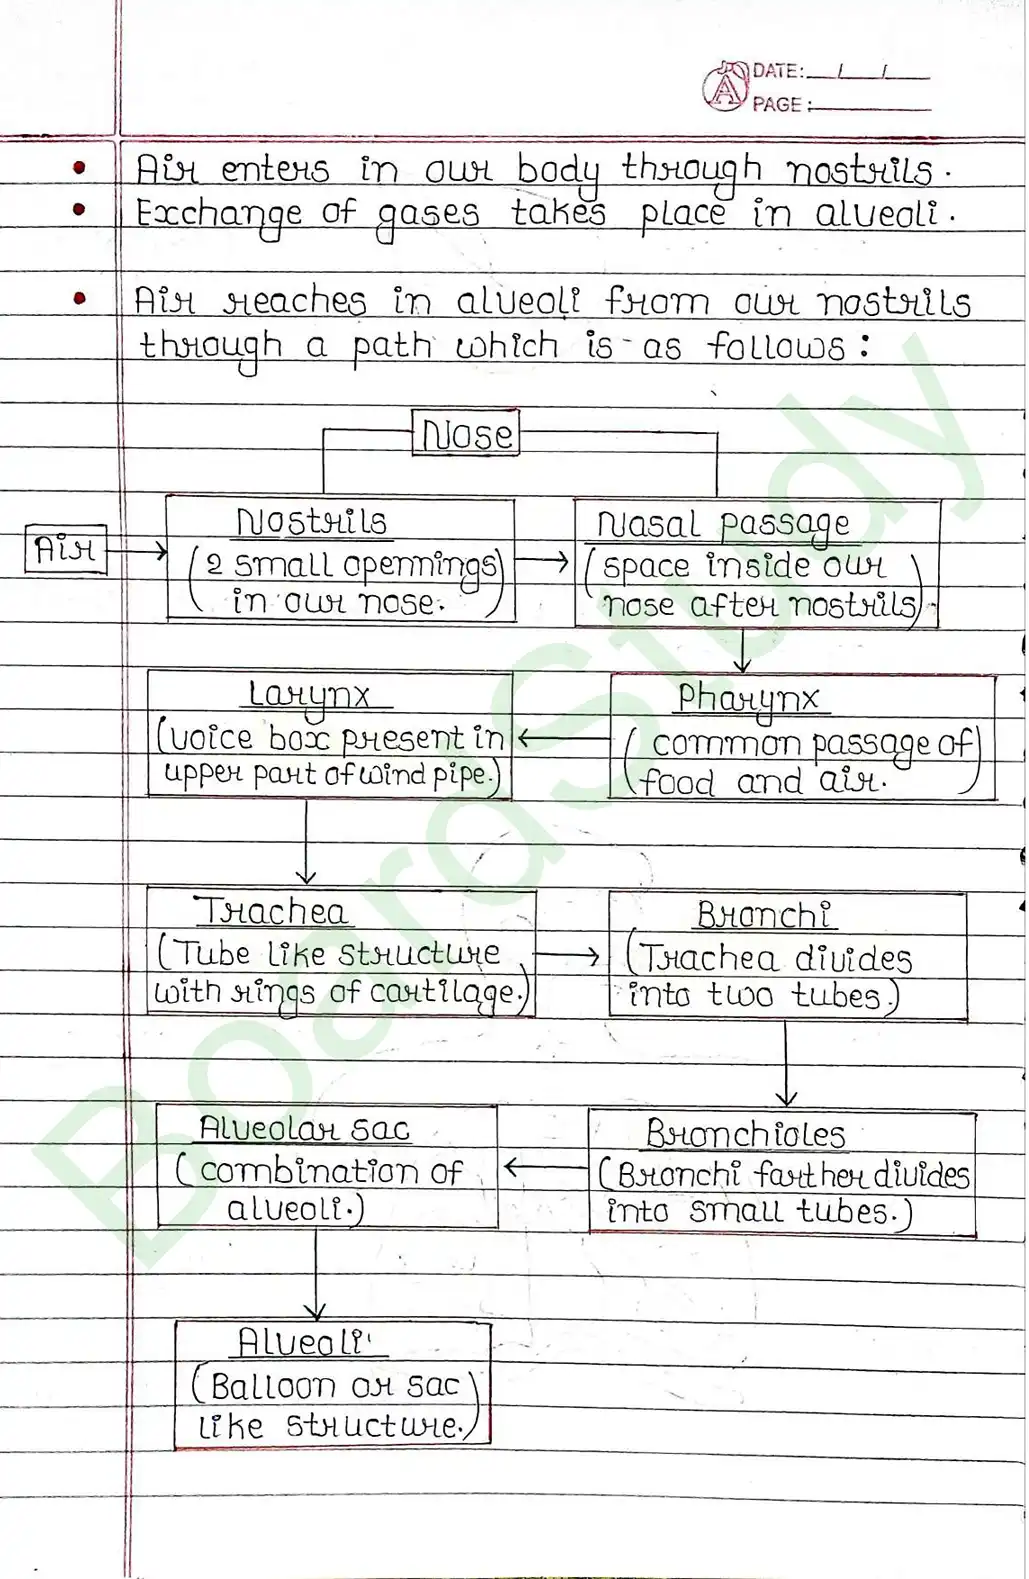 DATE: / /
PAGE:
Air enters in our body through nostrils.
Exchange of gases takes place in alveoli.
Air reaches in alveoli from our nostrils
through a path which is as follows:
Nose
Air
Nostrils
(2 small opennings
in our nose.)
Nasal passage
(space inside our
nose after nostrils)
Larynx
(voice box present in
upper part of wind pipe.)
Pharynx
(common passage of
food and air.)
Trachea
(Tube like structure
with rings of cartilage.)
Bronchi
(Trachea divides
into two tubes.)
Alveolar sac
(combination of
alveoli.)
Bronchioles
(Bronchi farther divides
into small tubes.)
Alveoli
(Balloon or sac
like structure.)
BoardStudy